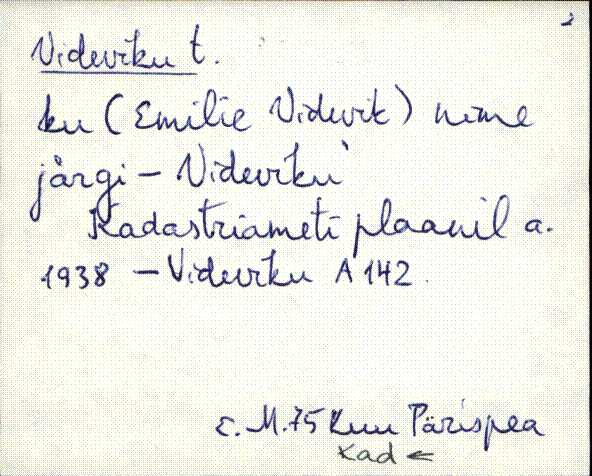 2
Videviku t.
ku (Emilie Videvik) nime
järgi – Videviku'
Kadastriameti plaanil a.
1938 – Videviku A 142.
E. M. 75 Kuu Pärispea
Kad ←